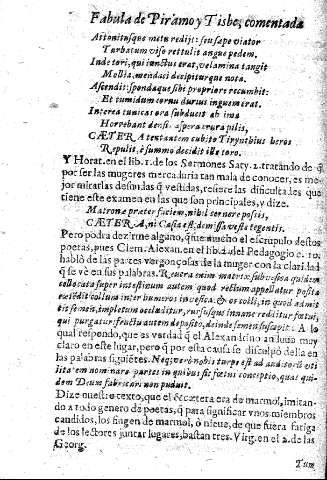 Fabula de Piramo y Tisbe, comentada
Attonitusque metu redijt: seu sape viator
Turbatum viso rettulit angue pedem.
Inde tori, qui iunctus erat, velamina tangit
Mollia, mendaci decipiturque nota.
Ascendit: spondaque sibi propiore recumbit:
Et tumidum cornu durius inguen erat.
Interea tunicas ora subducit ab ima
Horrebant densis aspera crura pilis,
CÆTERA tentantem cubito Tirynthius heros
Repulit, è summo decidit ille toro.
Y Horat. en el lib. 1. de los Sermones Saty. 2. tratando de q̃
por ser las mugeres mercaduria tan mala de conocer, es me-
jor mirarlas desnudas q̃ vestidas, refiere las dificultades que
tiene este examen en las que son principales, y dize.
Matronæ præter faciem, nihil cernere possis,
CÆTERA, ni Catia est, demissa veste tegentis.
Pero podra dezirme algũo, q̃ fue mucho el escrupulo destos
poetas, pues Clem. Alexan. en el lib. 2. del Pedagogio c. 10.
hablò de las partes vergonçosas de la muger con la claridad
q̃ se vè en sus palabras. Revera enim matrix subvesica quidem
collocata super intestinum autem quod rectum appellatur posita
extendit collum inter humeros in vesica: & os colli, in quod admit
tit semen, impletum occluditur, rursusque inane redditur fœtui,
qui purgatur fructu autem deposito, deinde semen suscipit. A lo
qual respondo, que es verdad q̃ el Alexandrino anduvo muy
claro en este lugar, pero q̃ por esta causa se disculpò della en
las palabras siguiẽtes. Neque verò nobis turpe est ad auditorũ uti
litatem nominare partes in quibus fit fœtus conceptio, quas qui-
dem Deum fabricari non puduit.
Dize nuestro texto, que el & cætera era de marmol, imitan-
do a todo genero de poetas, q̃ para significar vnos miembros
candidos, los fingen de marmol, ò nieve, de que fuera fatiga
de los lectores juntar lugares, bastan tres. Virg. en el 2. de las
Georg.
Tum